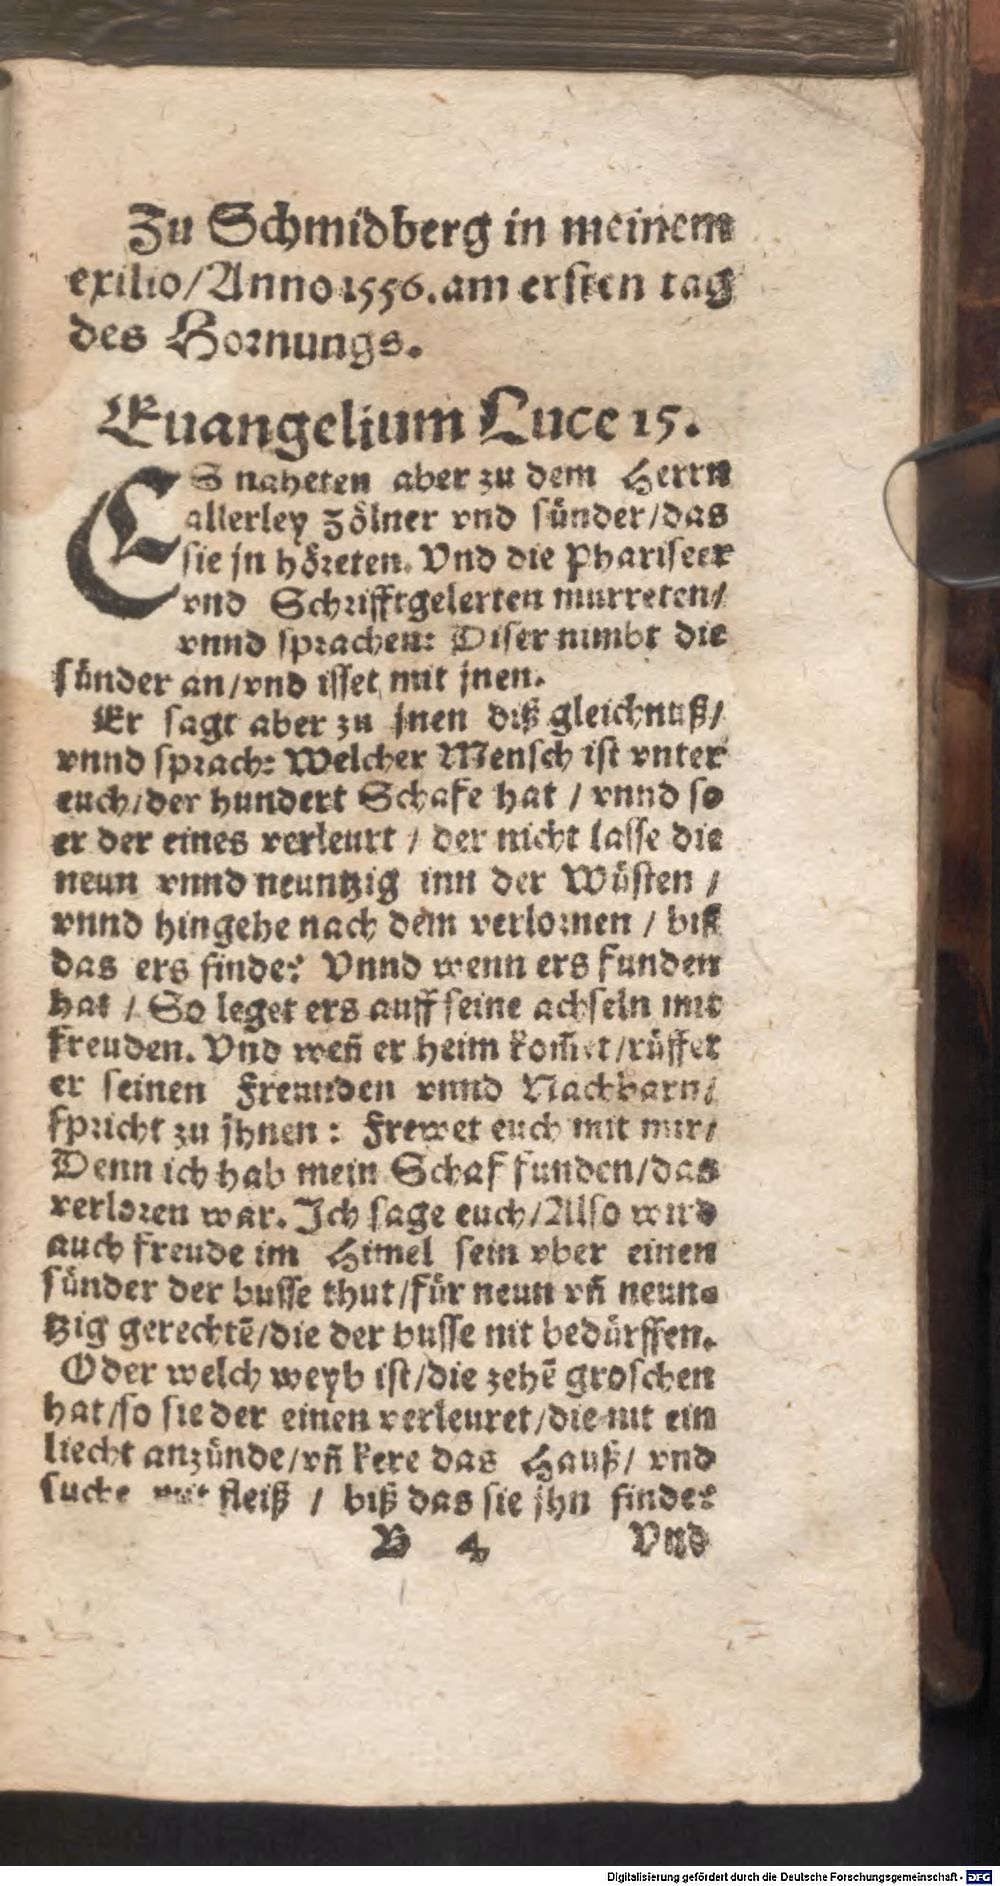 Zu Schmidberg in meinem
exilio/Anno 1556. am ersten tag
des Hornungs.
Euangelium Luce 15.
ES naheten aber zu dem Herrn
allerley Zölner vnd sünder/das
sie jn höreten. Vnd die Phariseer
vnd Schrifftgelerten murreten/
vnnd sprachen: Diser nimbt die
sünder an/vnd isset mit jnen.
Er sagt aber zu jnen diß gleichnuß/
vnnd sprach: Welcher Mensch ist vnter
euch/der hundert Schafe hat / vnnd so
er der eines verleurt / der nicht lasse die
neun vnnd neuntzig inn der Wüsten /
vnnd hingehe nach dem verlornen / biß
das ers finde? Vnnd wenn ers funden
hat / So leget ers auff seine achseln mit
freuden. Vnd weñ er heim kom̃et/rüffet
er seinen Freunden vnnd Nachbarn/
spricht zu jhnen : Frewet euch mit mir/
Denn ich hab mein Schaf funden/das
verloren war. Ich sage euch/Also wird
auch freude im Himel sein vber einen
sünder der busse thut/für neun vñ neun-
tzig gerechtẽ/die der busse nit bedürffen.
Oder welch weyb ist/die zehẽ groschen
hat/so sie der einen verleuret/die nit ein
liecht anzünde/vñ kere das Hauß/ vnd
suche mit fleiß / biß das sie jhn finde?
B 4 Vnd
Digitalisierung gefördert durch die Deutsche Forschungsgemeinschaft - DFG